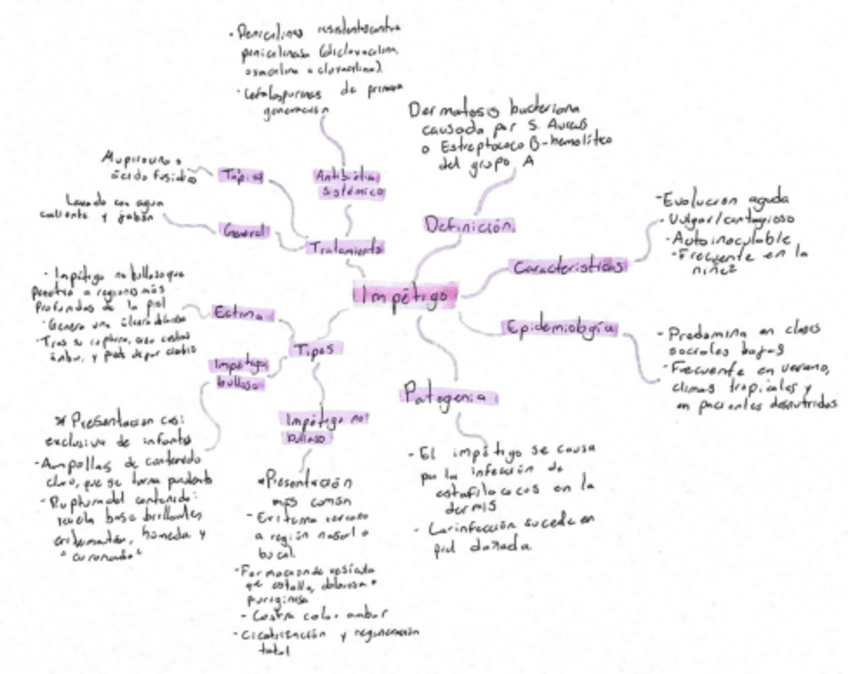 Impétigo
Definición
Dermatosis bacteriana
causada por S. Aureus
o Estreptococo β-hemolítico
del grupo A
Características
- Evolución aguda
- Vulgar/contagioso
- Autoinoculable
- Frecuente en la
niñez
Epidemiología
- Predomina en clases
sociales bajas
- Frecuente en verano,
climas tropicales y
en pacientes desnutridos
Patogenia
- El impétigo se causa
por la infección de
estafilococos en la
dermis
- La infección sucede en
piel dañada
Tipos
Impétigo no
bulloso
*Presentación
más común
- Eritema cercano
a región nasal o
bucal
- Formación de vesícula
que estalla, dolorosa o
- Costra color ambar
- Cicatrización y regeneración
total
Impétigo
bulloso
* Presentación casi
exclusiva de infantes
- Ampollas de contenido
claro, que se torna purulento
- Ruptura del contenido:
revela base brillante,
eritematosa, húmeda y
Ectima
- Impétigo no bulloso que
penetra a regiones más
profundas de la piel
- Genera una úlcera dolorosa
- Tras su ruptura, crea costras
ámbar, y puede dejar
Tratamiento
General
Lavado con agua
caliente y jabón
Tópico
Mupirocina o
ácido fusídico
Antibiótico
sistémico
- Penicilinas resistentes contra
penicilinasa (dicloxacilina,
oxacilina o cloxacilina).
- Cefalosporinas de primera
generación